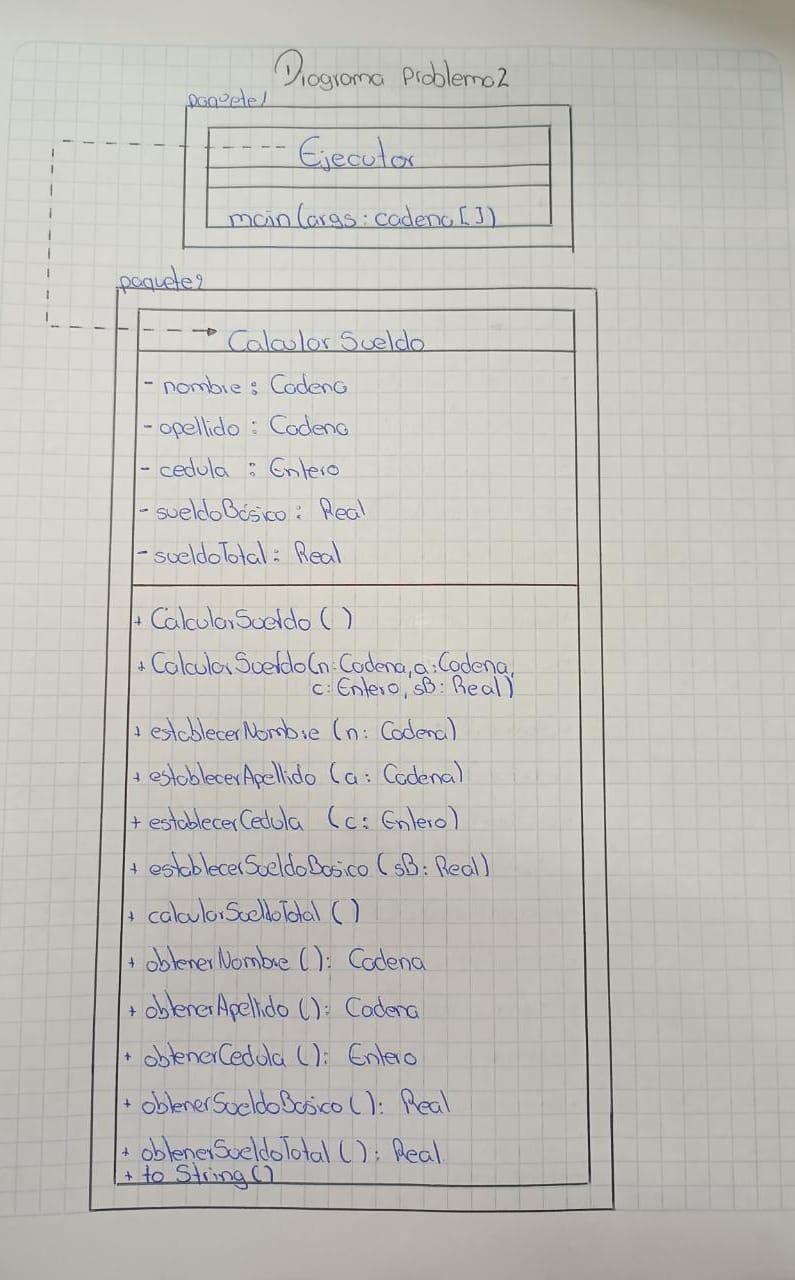 Diagrama Problema 2
paquete1
Ejecutor
main(args: cadena[])
paquete2
CalcularSueldo
- nombre: Cadena
- apellido: Cadena
- cedula: Entero
- sueldoBásico: Real
- sueldoTotal: Real
+ CalcularSueldo()
+ CalcularSueldo(n:Cadena, a:Cadena,
c:Entero, sB:Real)
+ establecerNombre (n: Cadena)
+ establecerApellido (a: Cadena)
+ establecerCedula (c: Entero)
+ establecerSueldoBasico (sB: Real)
+ calcularSueldoTotal ()
+ obtenerNombre (): Cadena
+ obtenerApellido (): Cadena
+ obtenerCedula (): Entero
+ obtenerSueldoBasico (): Real
+ obtenerSueldoTotal (): Real
+ to String()